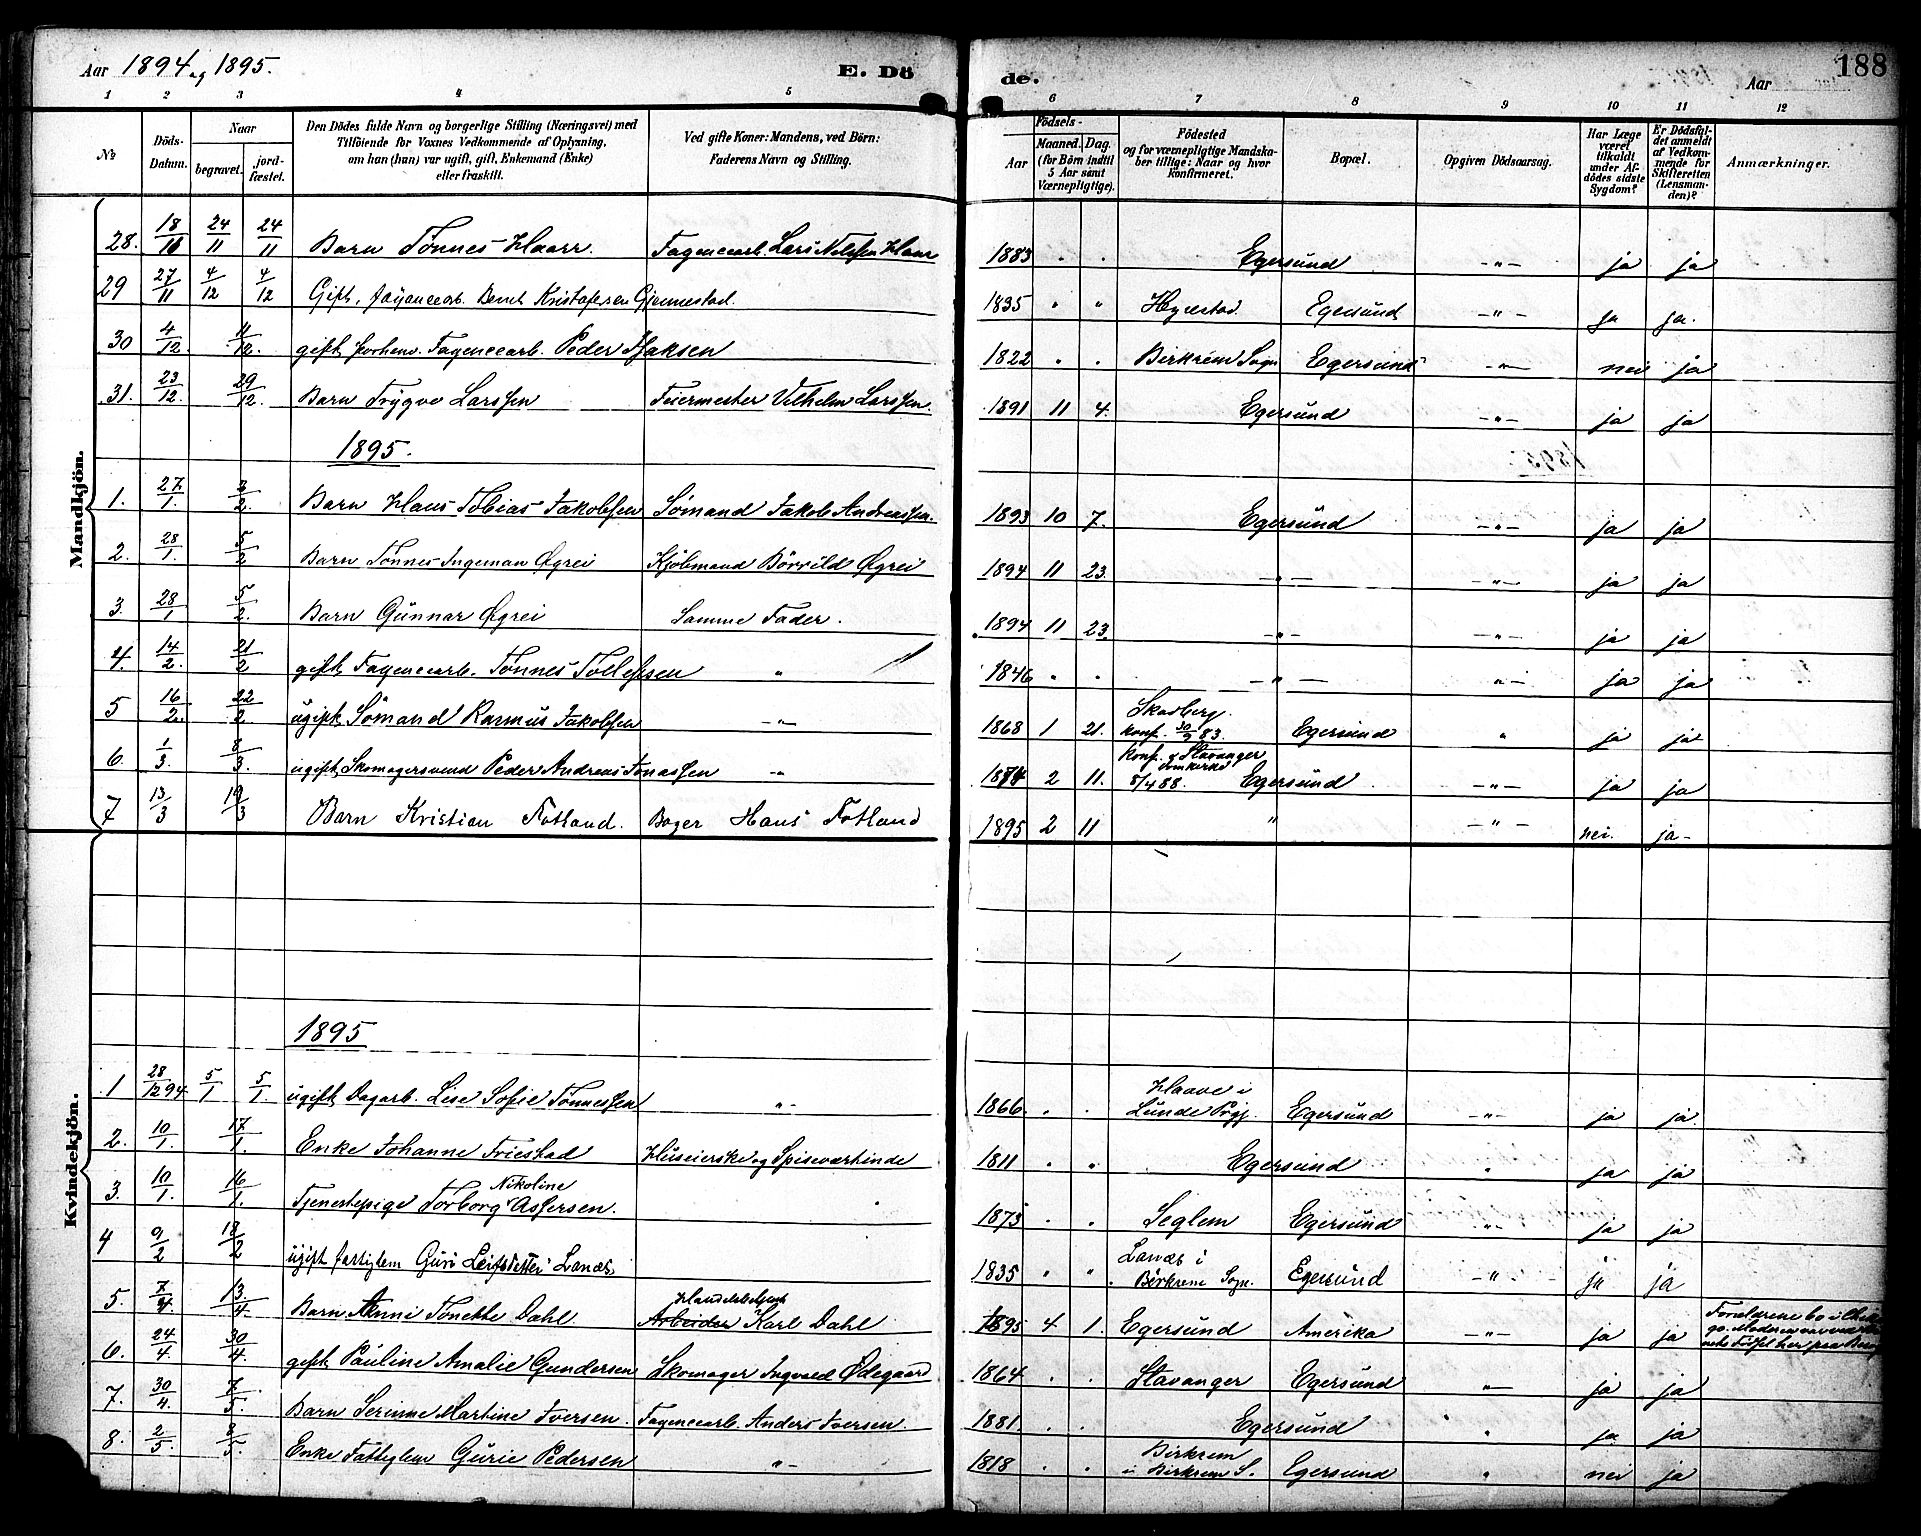 Aar 1894 og 1895. E. Dö de. Aar 188
1 2 3 4 5 6 7 8 9 10 11 12
No Döds-Datum. Naar begravet. jord-fæstet. Den Dödes fulde Navn og borgerlige Stilling (Næringsvei) med Tilföiende for Voxnes Vedkommende af Oplysning, om han (hun) var ugift, gift, Enkemand (Enke) eller fraskilt. Ved gifte Koner: Mandens, ved Börn: Faderens Navn og Stilling. Födsels- Aar Maaned. Dag. (for Börn indtil 5 Aar samt Værnepligtige). Födested og for værnepligtige Mandskaber tillige: Naar og hvor konfirmeret. Bopæl. Opgiven Dödsaarsag. Har Læge været tilkaldt under Afdödes sidste Sygdom? Er Dödsfaldet anmeldt af Vedkommende for Skifteretten (Lensmanden)? Anmærkninger.
Mandkjön.
28. 18/11 24/11 24/11 Barn Tönnes Haarr. Fayencearb. Lars Nelssen Haar 1883 " " Egersund -"- ja ja
29 27/11 4/12 4/12 Gift, fayancearb. Bernt Kristofersen Gjermestad. 1835 " " Hegrestad. Egersund -"- ja ja.
30 4/12 11/12. gift forhenv. Fayencearb. Peder Isaksen 1822 " " Birkrem Sogn Egersund -"- nei ja
31. 23/12. 29/12. Barn Trygve Larssen Fuermester Vilhelm Larssen. 1891 11 4. Egersund -"- ja ja
1895.
1. 27/1. 3/2. Barn Hans Tobias Jakobssen Sømand Jakob Andreassen. 1893 10 7. Egersund -"- ja ja
2. 28/1. 5/2 Barn Tønnes Ingeman Øgrei Kjøbmand Börrild Øgrei 1894 11 23. -"- -"- ja ja
3. 28/1 5/2. Barn Gunnar Øgrei Samme Fader. 1894 11 23. -"- -"- ja ja
4. 14/2. 21/2 gift Fayencearb. Tønnes Tollefsen " 1846 " " -"- -"- ja ja
5 16/2. 22/2 ugift Sømand Rasmus Jakobssen -"- 1868 1 21. Skadberg. konf. 30/9 83. Egersund " ja ja
6. 1/3. 8/3. ugift Skomagersvend Peder Andreas Jonassen -"- 1874 2 11. Konf. v Stavanger domkirke 8/4 88. Egersund -"- ja ja
7 13/3 19/3 Barn Kristian Fotland. Bager Hans Fotland 1895 2 11 " -"- nei. ja-
Kvindekjön.
1895
1 28/12 94 5/1 5/1. ugift Dagarb. Lise Sofie Tønnessen " 1866. " " Haave i Lunde Pgj. Egersund -"- ja ja.
2. 10/1. 17/1. Enke Johanne Friestad Huseierske og Spiseværtinde 1811 " " Egersund " ja ja
3. 10/1. 16/1. Tjenestepige Torborg Nikoline Assersen. " 1875 " " Seglem Egersund -"- ja ja
4 9/2 18/2 ugift fattiglem Guri Leifsdatter Lanæs. 1835 " " Lanæs i Birkrem Sogn. Egersund -"- ja ja
5. 7/4. 13./4. Barn Anni Tonette Dahl. Handelsbetjent Arbeider Karl Dahl 1895 4 1. Egersund Amerika -"- ja ja Forældrene bo i
6. 24/4. 30/4. gift Pauline Amalie Gundersen Skomager Ingvald Ødegaard 1864 " " Stavanger Egersund -"- ja ja
7. 30/4. 7/5. Barn Serinne Martine Iversen. Fayencearb. Anders Iversen. 1881. " " Egersund " ja ja
8. 2/5. 8/5. Enke Fattiglem Gurie Pedersen -"- 1818 " " Birkrem i Birkrem S. Egersund " nei ja